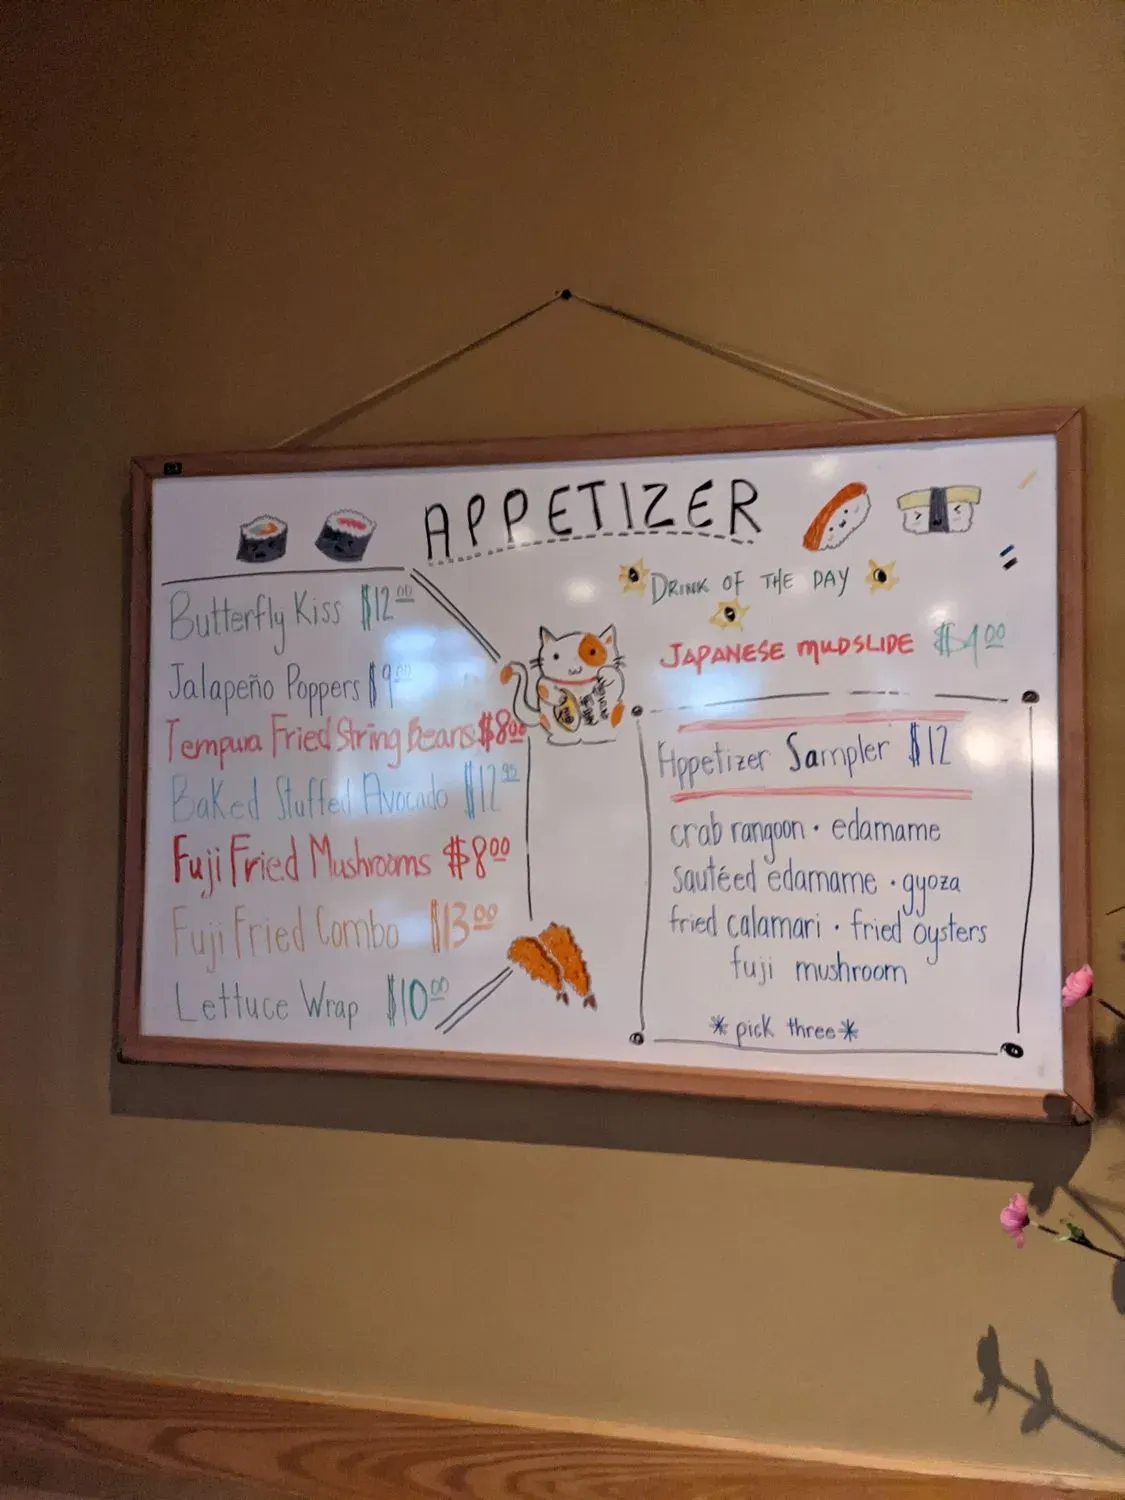 APPETIZER
Butterfly Kiss $12.00
Jalapeño Poppers $9.00
Tempura Fried String Beans $8.00
Baked Stuffed Avocado $12.95
Fuji Fried Mushrooms $8.00
Fuji Fried Combo $13.00
Lettuce Wrap $10.00
DRINK OF THE DAY
JAPANESE MUDSLIDE
Appetizer Sampler $12
crab rangoon · edamame
sautéed edamame · gyoza
fried calamari · fried oysters
fuji mushroom
*pick three*